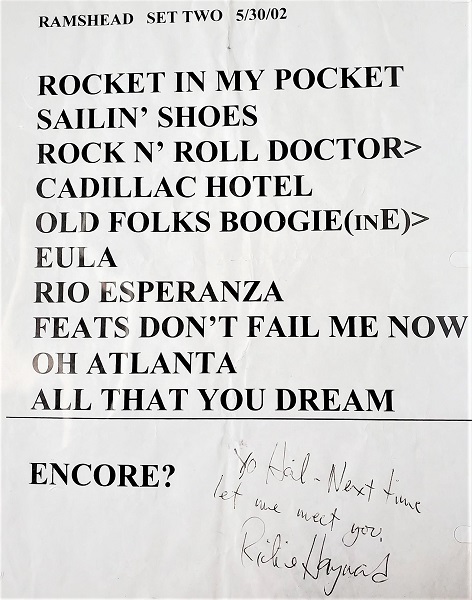 RAMSHEAD SET TWO 5/30/02
ROCKET IN MY POCKET
SAILIN' SHOES
ROCK N' ROLL DOCTOR>
CADILLAC HOTEL
OLD FOLKS BOOGIE(INE)>
EULA
RIO ESPERANZA
FEATS DON'T FAIL ME NOW
OH ATLANTA
ALL THAT YOU DREAM
ENCORE?
Yo Hal - Next time
let me meet you.
Richie Hayward